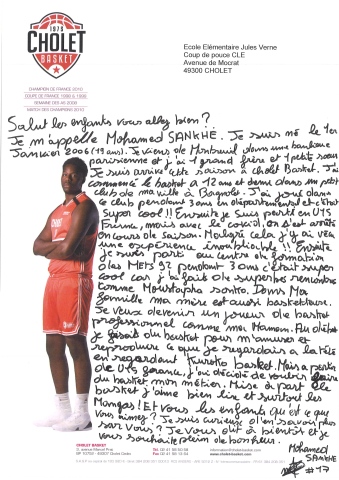 1975
CHOLET
BASKET
CHAMPION DE FRANCE 2010
COUPE DE FRANCE 1998 & 1999
SEMAINE DES AS 2008
MATCH DES CHAMPIONS 2010
Ecole Elémentaire Jules Verne
Coup de pouce CLE
Avenue de Mocrat
49300 CHOLET
Salut les enfants vous allez bien?
Je m'appelle Mohamed SANKHE. Je suis né le 1er
Janvier 2006 (19 ans). Je viens de Montreuil dans une banlieue
parisienne et j'ai 1 grand frère et 1 petite soeur
Je suis arrivé cette saison à Cholet Basket. J'ai
commencé le basket à 12 ans et demi dans un petit
club de ma ville à Bagnolet. J'ai joué dans
ce club pendant 3 ans en départemental et c'était
Super cool!! Ensuite je suis parti en U15
France, mais avec le covid, on s'est arrêté
en cours de saison. Malgré cela j'y ai vécu
une expérience inoubliable!! Ensuite
je suis parti au centre de formation
des METS 92 pendant 3 ans c'était super
cool car j'ai fait de superbes rencontre
comme Moustapha
Dans Ma
famille ma mère est aussi basketteuse.
Je veux devenir un joueur de basket
professionnel comme ma Maman. Au début
je faisait du basket pour m'amuser et
reproduire ce que je regardais à la télé
en regardant Kuroko basket. Mais a partir
de U15 france, j'ai décidé de vouloir faire
du basket mon métier. Mise à part le
basket j'aime bien lire et surtout les
Mangas! Et vous les enfants qu'est ce que
vous aimez? Je suis curieux d'en savoir plus
sur vous? Je vous dit à bientôt et je
vous souhaite plein de bonheur.
Mohamed
SANKHE
#17
CHOLET BASKET